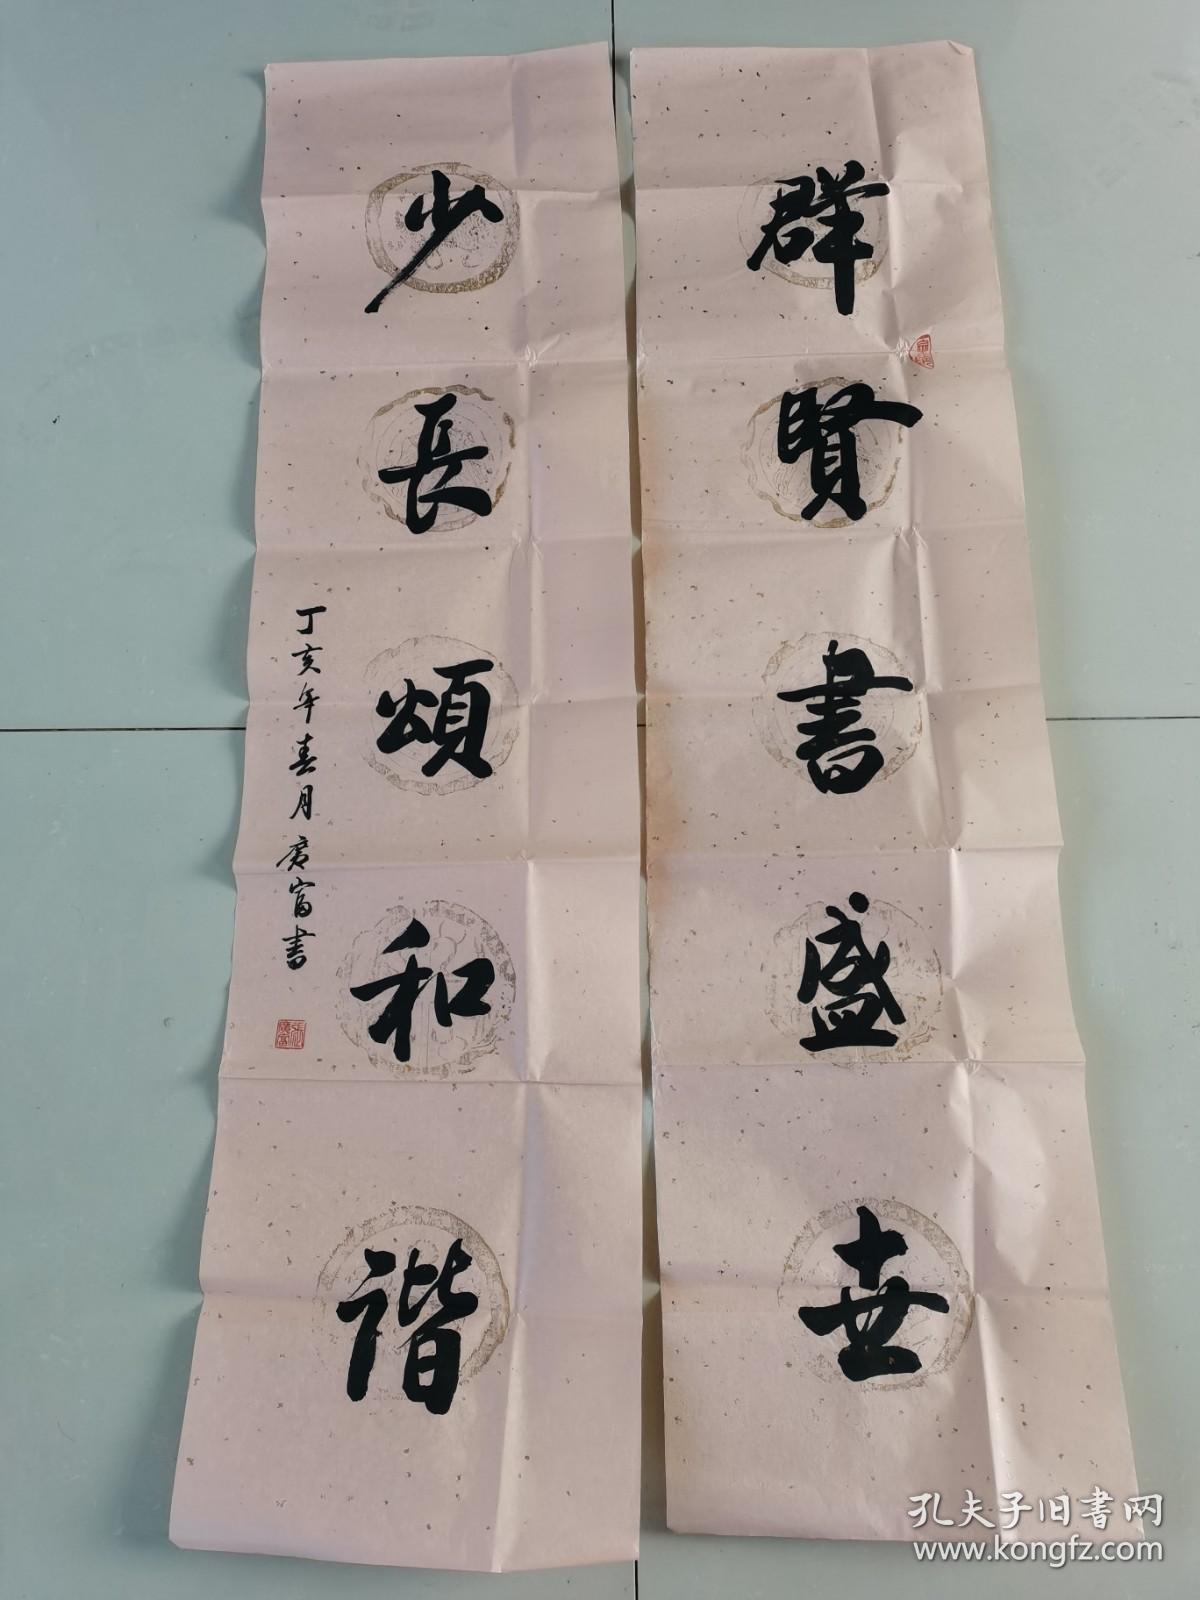 群賢書盛世
少長頌和諧
丁亥年春月廣富書
張廣富
孔夫子旧书网
www.kongfz.com